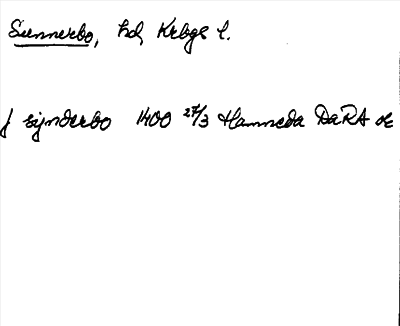 Sunnerbo, hd, Krbgs l.
j synderbo 1400 27/3 Hamneda DaRA or